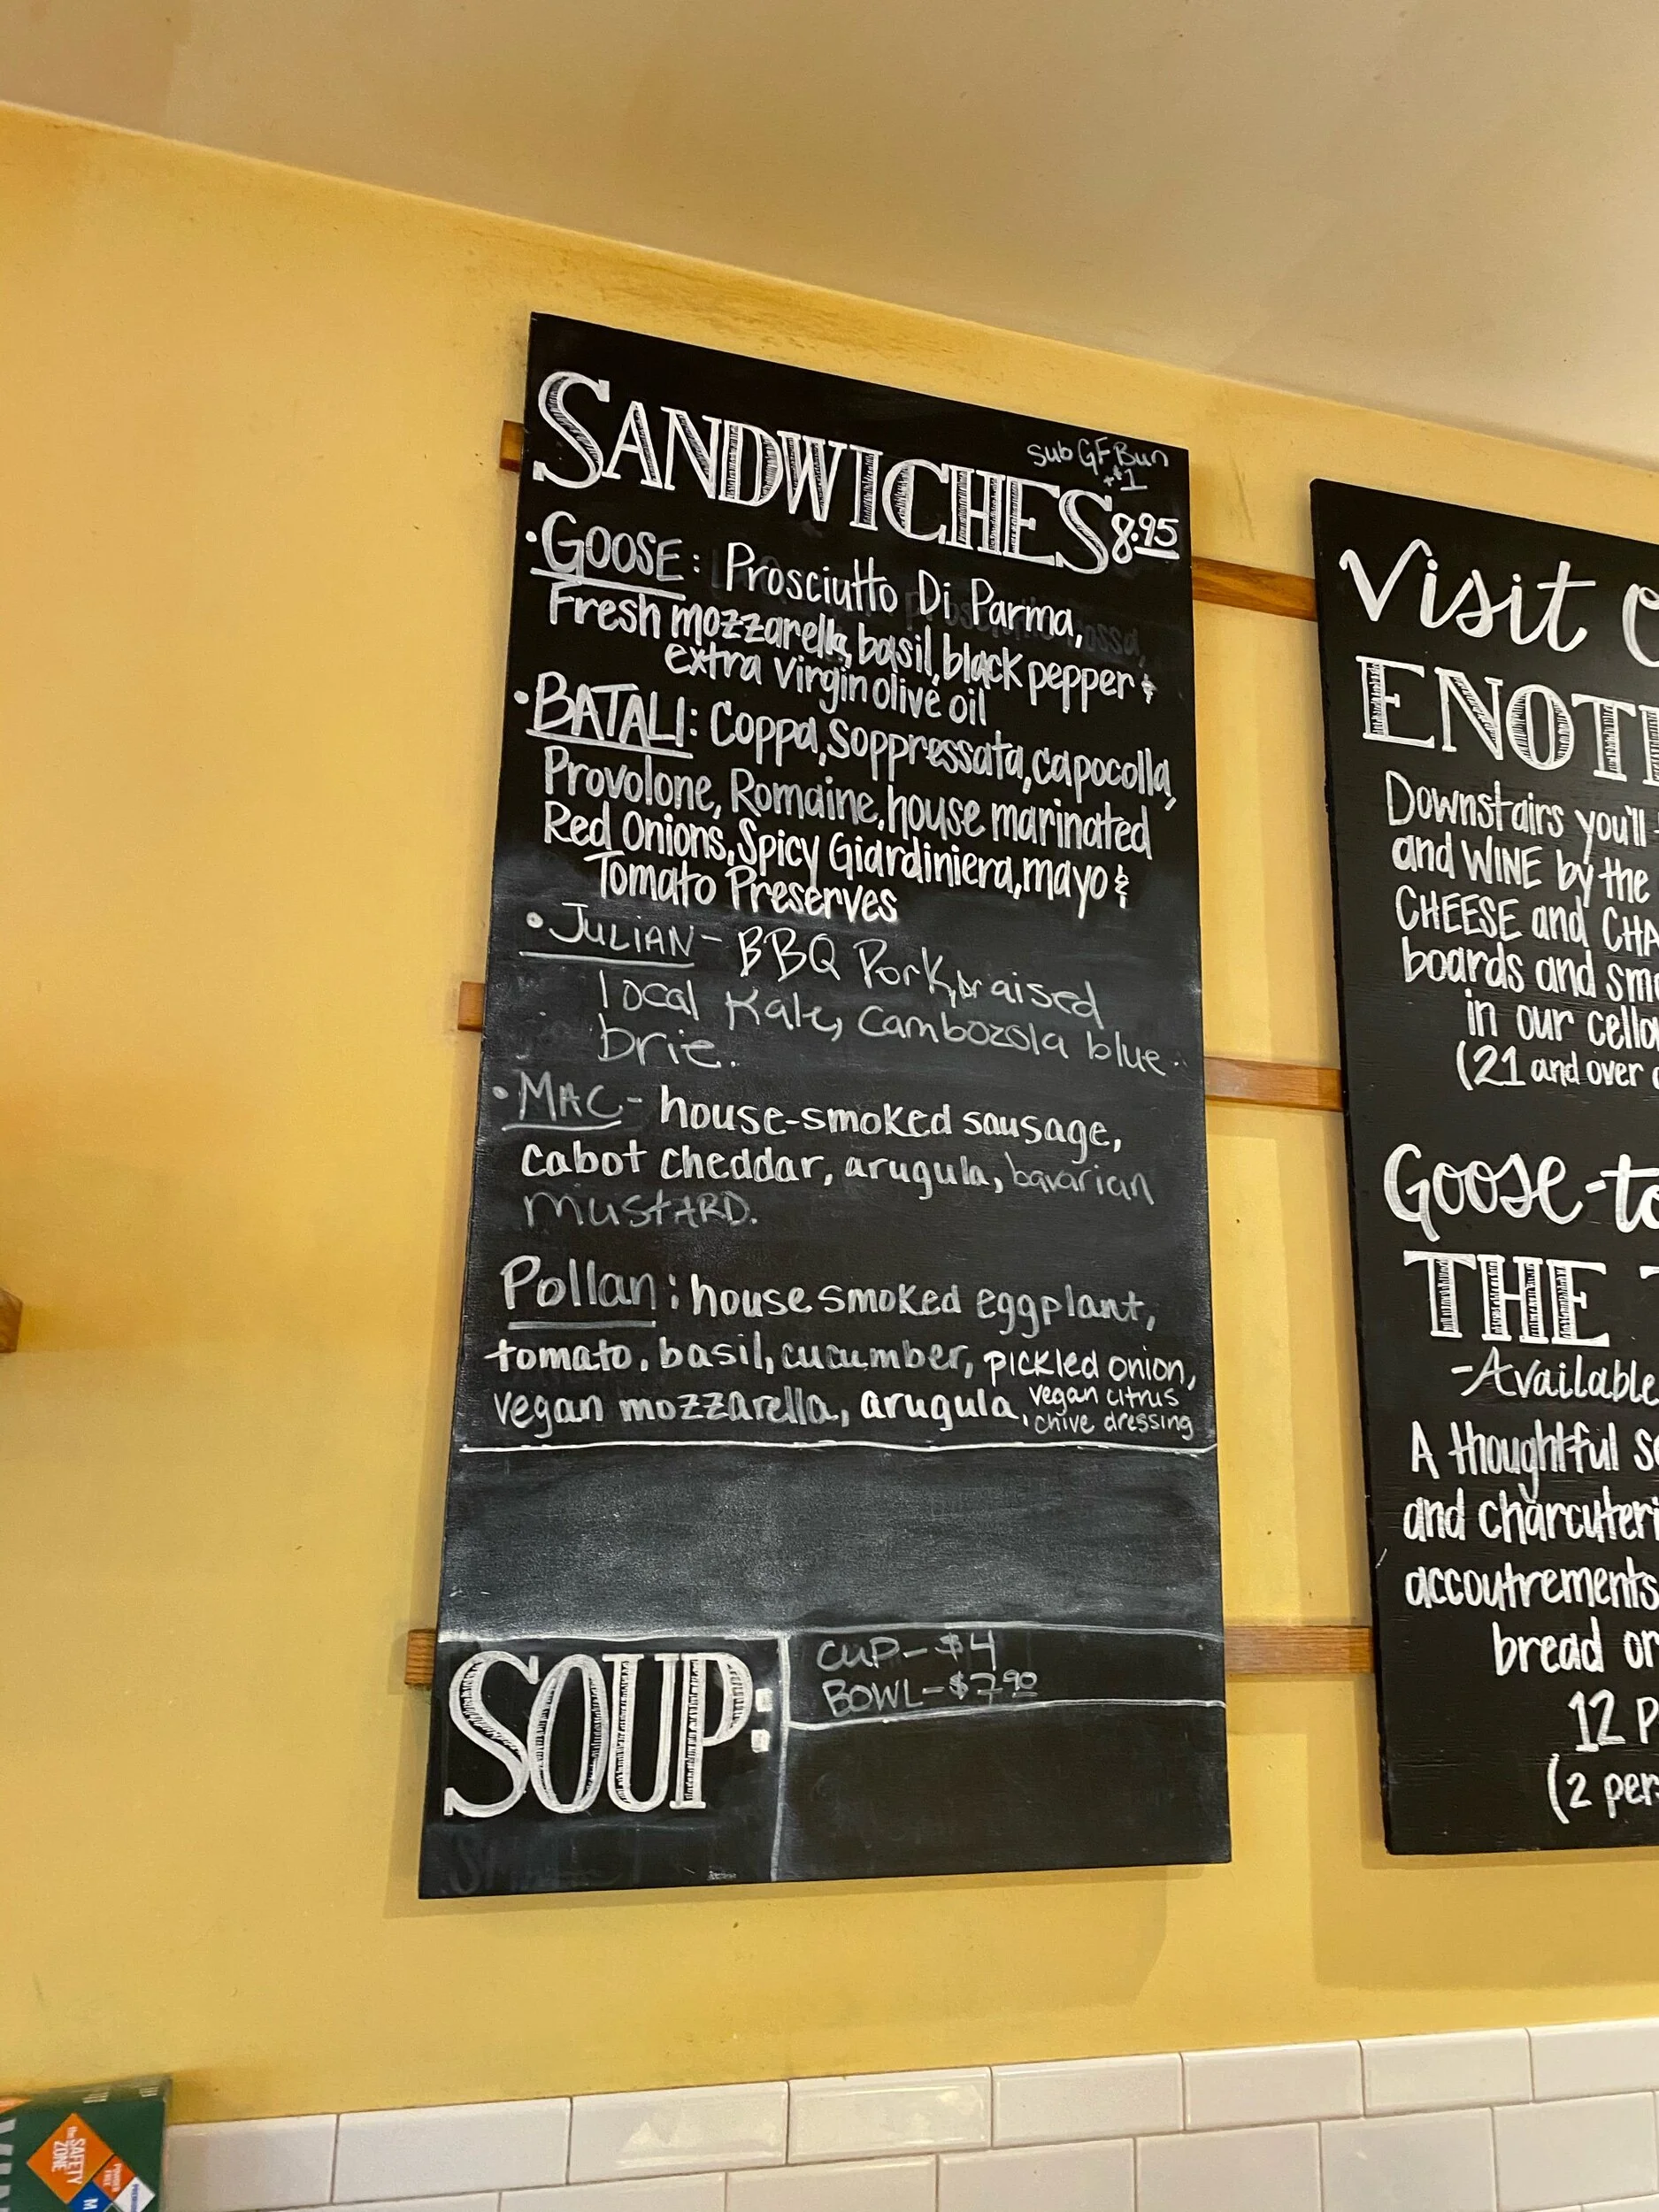 SANDWICHES 8.95
sub GF Bun
+$1
•GOOSE: Prosciutto Di Parma,
Fresh mozzarella, basil, black pepper &
extra virgin olive oil
•BATALI: Coppa, Soppressata, capocolla,
Provolone, Romaine, house marinated
Red Onions, Spicy Giardiniera, mayo &
Tomato Preserves
•JULIAN- BBQ Pork, braised
local Kale, Cambozola blue
brie.
•MAC- house-smoked sausage,
cabot cheddar, arugula, bavarian
MUSTARD.
Pollan: house smoked eggplant,
tomato, basil, cucumber, pickled onion,
vegan mozzarella, arugula, vegan citrus
chive dressing
SOUP:
CUP- $4
BOWL- $7.90
Visit
ENOT
Downstairs you'll
and WINE by the
CHEESE and CHA
boards and sm
in our cella
(21 and over
Goose-to
THE
-Available
A thoughtful s
and charcuteri
accoutrements
bread or
12 P
(2 per
the SAFETY
ZONE
POWDER
FREE
M